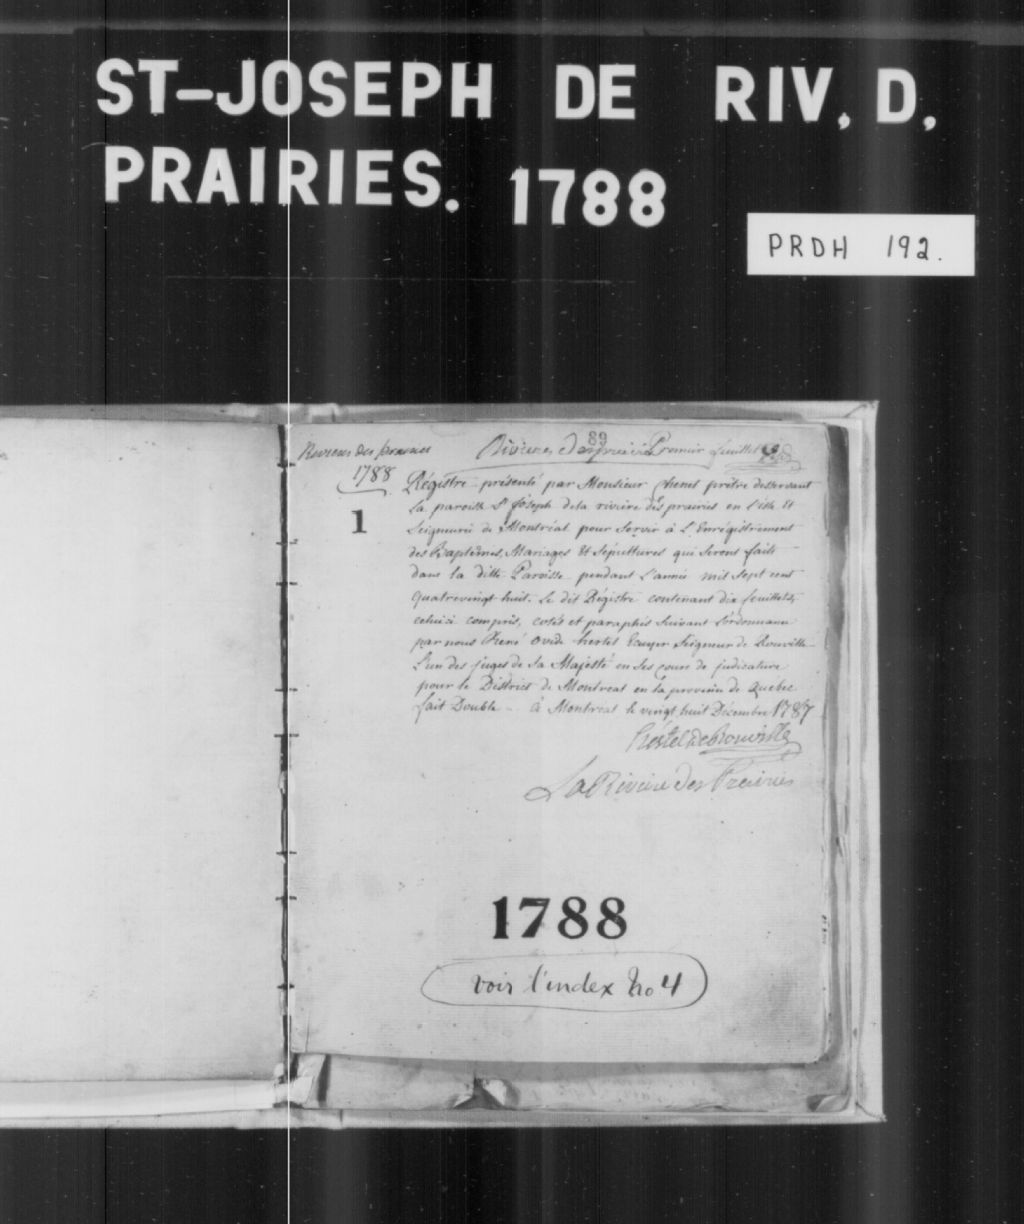 ST-JOSEPH DE RIV. D.
PRAIRIES. 1788
PRDH 192.
89
Rivieres des prairies
Premier feuillet
1788
1
Régistre présenté par Monsieur Chenet prêtre desservant
la paroisse St Joseph de la rivière des prairies en l'isle Et
Seigneurie de Montréal pour servir à L'Enrégistrement
des Baptêmes, Mariages Et sépultures qui seront faits
dans la ditte Paroisse pendant L'année mil sept cent
quatrevingt huit. Le dit Régistre contenant dix feuillets,
celui ci compris, cotés et paraphés suivant L'ordonnance
par nous René Ovide hertel Ecuyer Seigneur de Rouville
L'un des juges de Sa Majesté en ses cours de judicature
pour le District de Montréal en la province de Quebec
fait Double à Montréal le vingt huit Décembre 1787
hertel de Rouville
La Riviere des Prairies
1788
voir l'index No 4